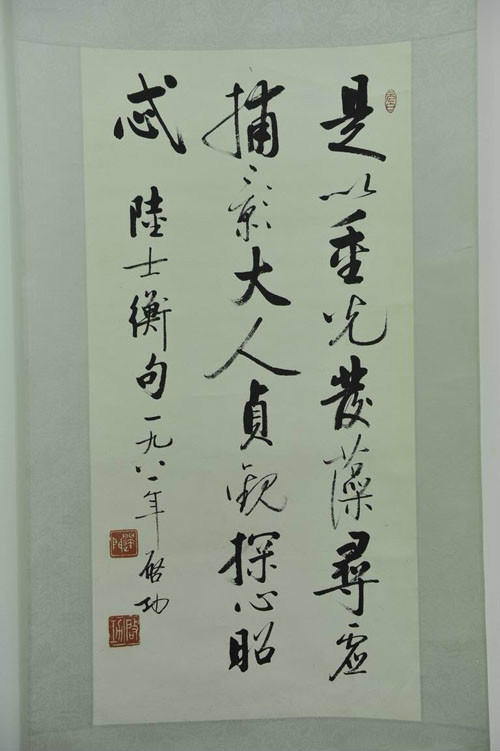 是以重光發藻尋虛
捕景大人貞觀探心昭
忒
陸士衡句一九八一年啓功